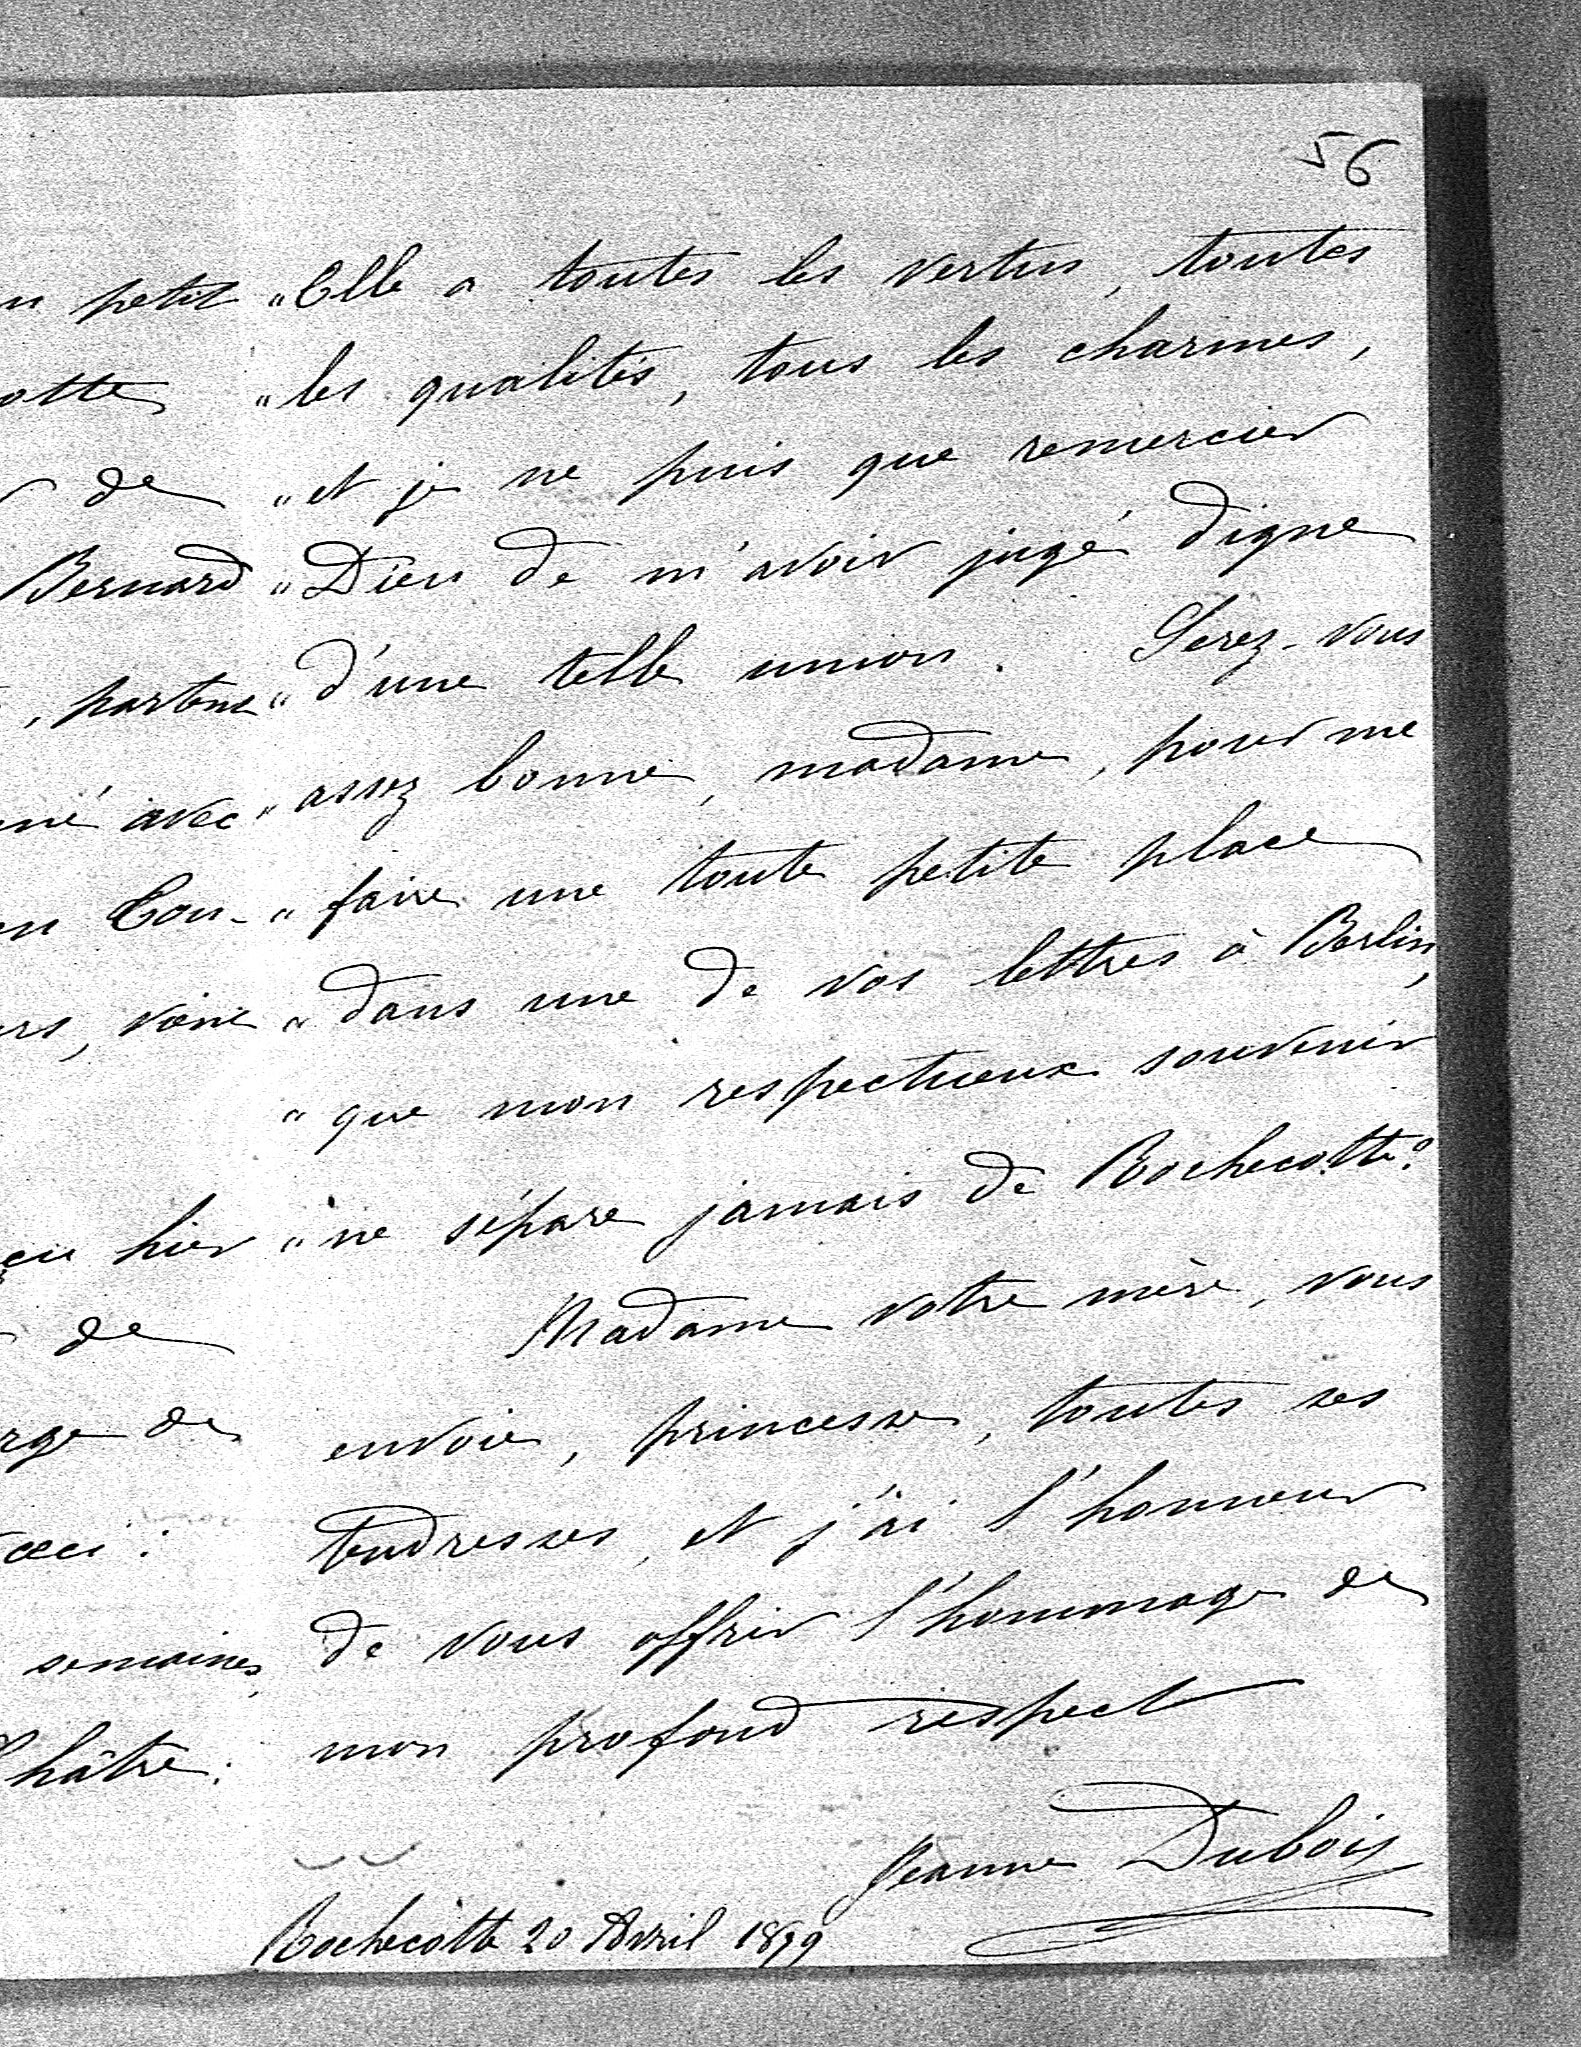 56
petit
otte
de
Bernard
, partout
né avec
en Cou-
rs, voire
çu hier
de
rge de
ceci :
semaines,
Châtre :
"Elle a toutes les vertus, toutes
"les qualités, tous les charmes,
"et je ne puis que remercier
"Dieu de m'avoir jugé digne
"d'une telle union. Serez-vous
"assez bonne, madame, pour me
"faire une toute petite place
"dans une de vos lettres à Berlin,
"que mon respectueux souvenir
"ne sépare jamais de Rochecotte?
Madame votre mère, vous
envoie, princesse, toutes ses
tendresses, et j'ai l'honneur
de vous offrir l'hommage de
mon profond respect
Jeanne Dubois
Rochecotte 20 Avril 1899